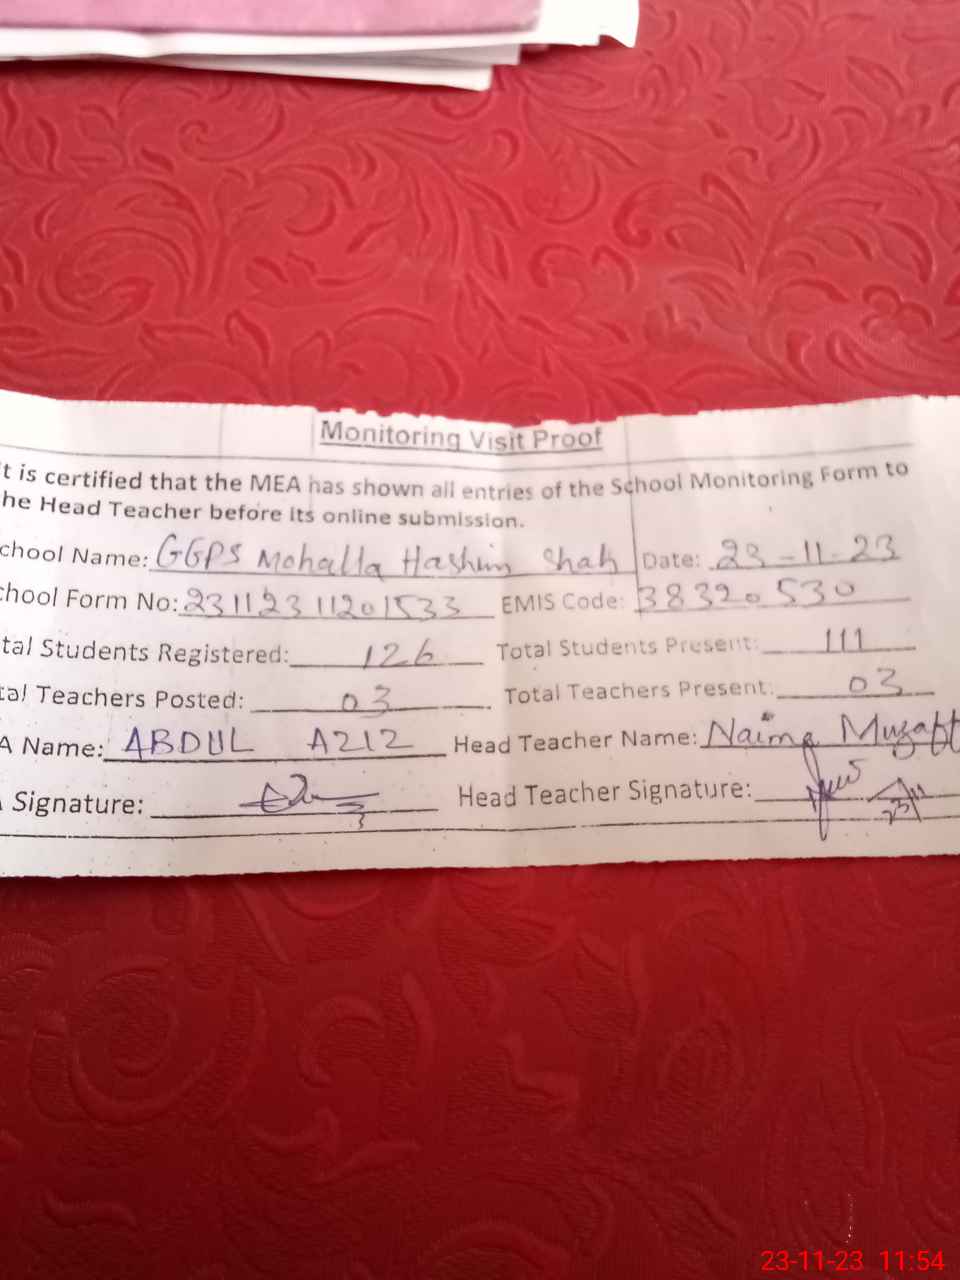 Monitoring Visit Proof
t is certified that the MEA has shown all entries of the School Monitoring Form to
he Head Teacher before its online submission.
chool Name: GGPS Mohalla Hashim Shah Date: 23-11-23
chool Form No: 23112311201533 EMIS Code: 38320530
tal Students Registered: 126 Total Students Present: 111
tal Teachers Posted: 03 Total Teachers Present: 03
A Name: ABDUL AZIZ Head Teacher Name: Naima Muzaff
Signature: Head Teacher Signature:
23/11
23-11-23 11:54